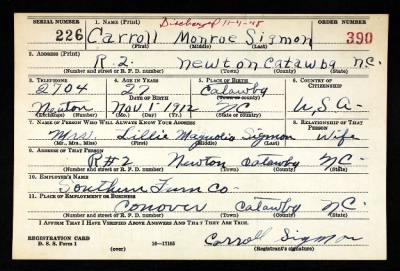 SERIAL NUMBER 1. NAME (Print) Discharged 11-4-45 ORDER NUMBER
226 Carroll Monroe Sigmon 390
(First) (Middle) (Last)
2. ADDRESS (Print)
R-2. Newton Catawba N.C.
(Number and street or R. F. D. number) (Town) (County) (State)
3. TELEPHONE 4. AGE IN YEARS 5. PLACE OF BIRTH 6. COUNTRY OF CITIZENSHIP
2704 27 Catawba
(Town or county)
Newton DATE OF BIRTH Nov. 1. 1912 NC U.S.A.
(Exchange) (Mo.) (Day) (Yr.) (State or country)
7. NAME OF PERSON WHO WILL ALWAYS KNOW YOUR ADDRESS 8. RELATIONSHIP OF THAT PERSON
Mrs. Lillie Magnolia Sigmon Wife
(Mr., Mrs., Miss) (First) (Middle) (Last)
9. ADDRESS OF THAT PERSON
R#2 Newton Catawba NC-
(Number and street or R. F. D. number) (Town) (County) (State)
10. EMPLOYER'S NAME
Southern Furn Co-
11. PLACE OF EMPLOYMENT OR BUSINESS
Conover Catawba NC.
(Number and street or R. F. D. number) (Town) (County) (State)
I AFFIRM THAT I HAVE VERIFIED ABOVE ANSWERS AND THAT THEY ARE TRUE.
REGISTRATION CARD
D. S. S. Form 1 (over) 16-17105 Carroll Sigmon
(Registrant's signature)